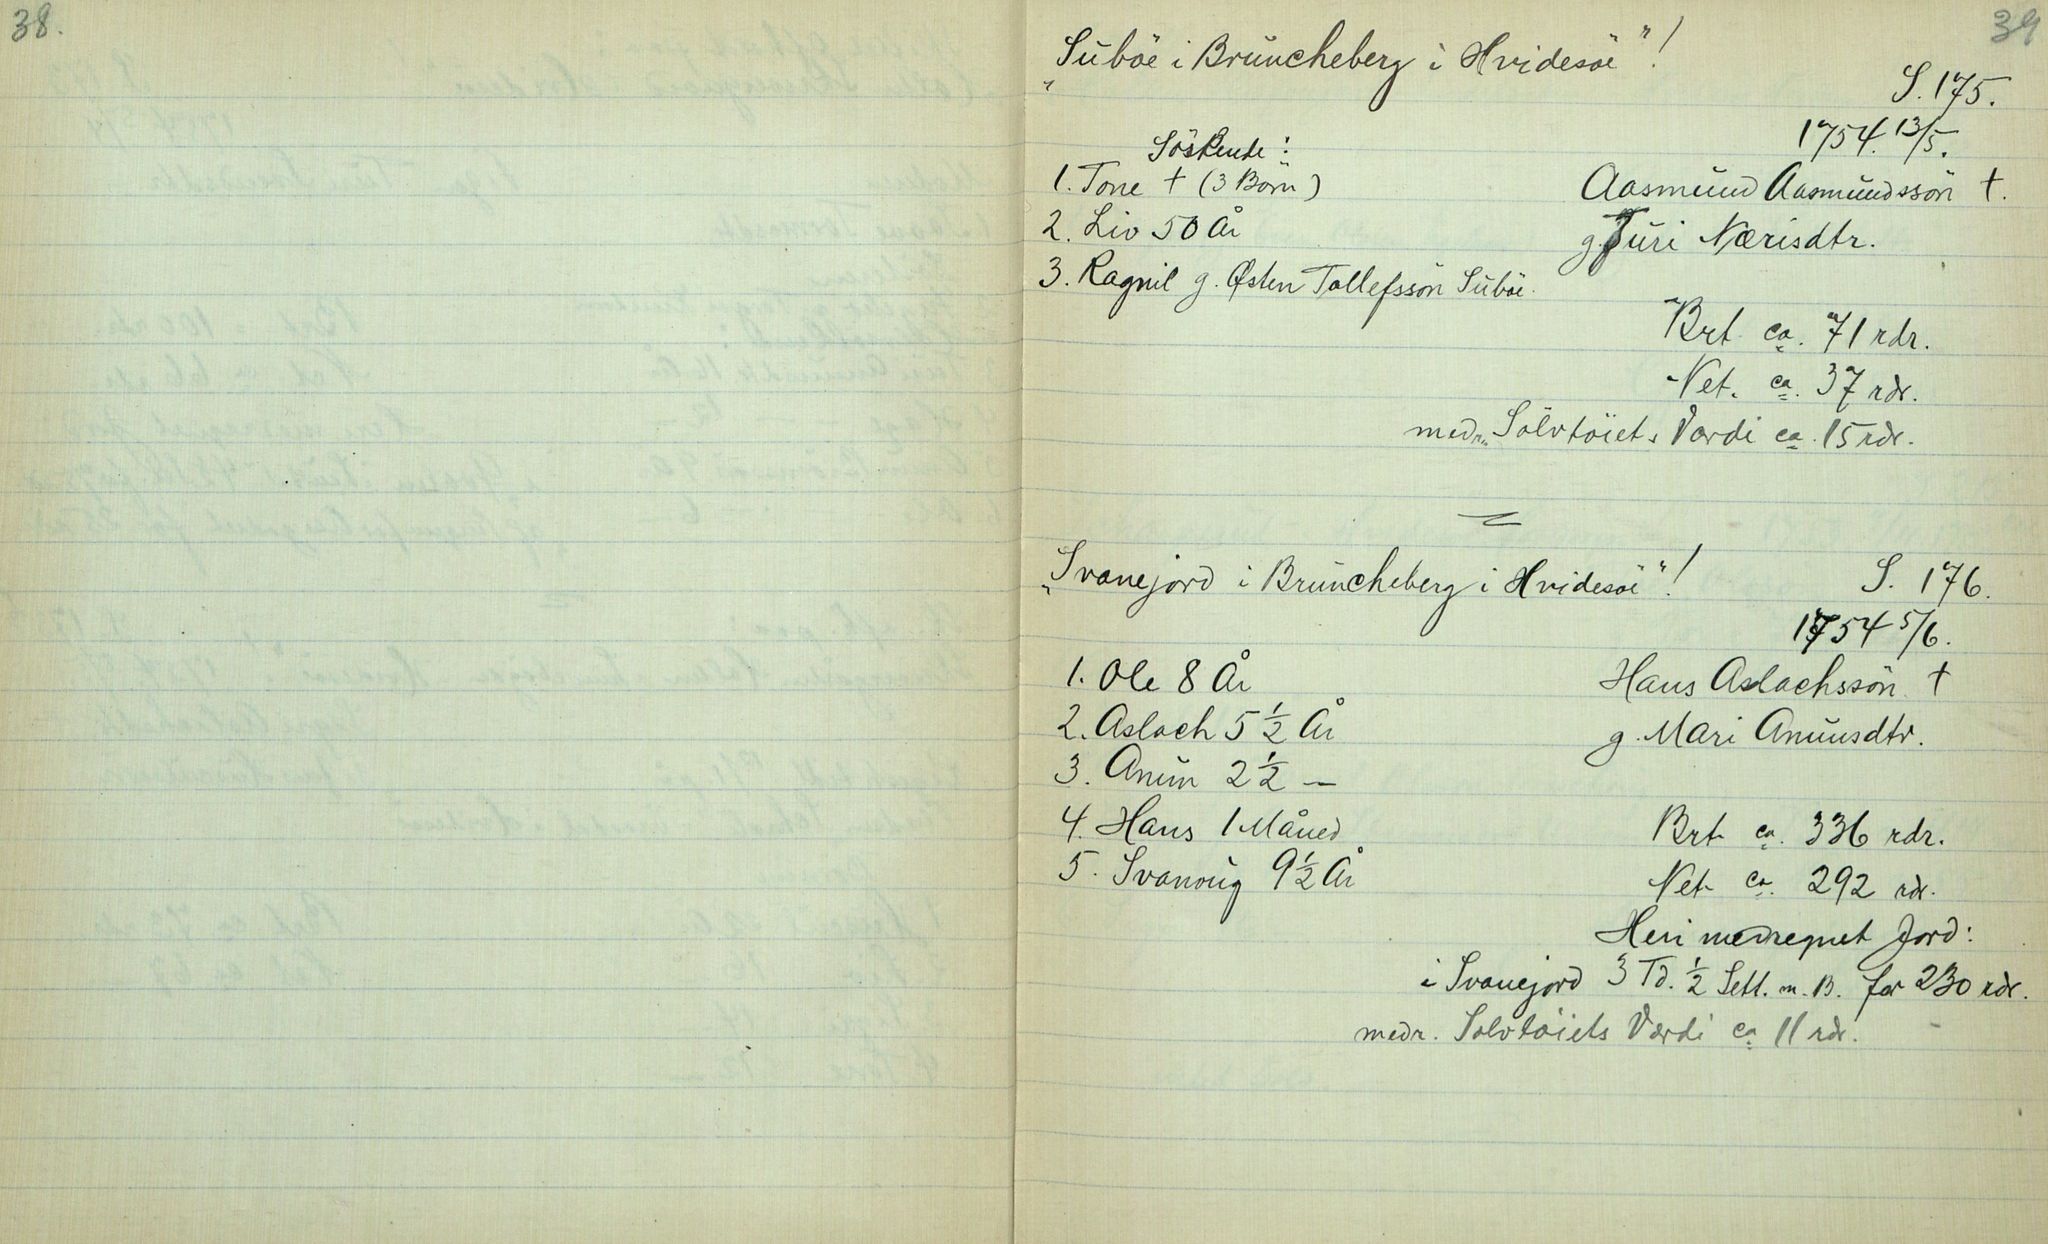 38.
39
"Suböe i Bruncheberg i Hvidesöe"!
S. 175.
1754. 13/5.
Söskende:
1. Tone † (3 Börn)
Aasmund Aasmundssön †.
2. Liv 50 År
g. Turi Nærisdtr.
3. Ragnil g. Østen Tollefssön Suböe.
Brt. ca. 71 rdr.
Net. ca. 37 rdr.
medr. Sölvtöiets Værdi ca. 15 rdr.
"Svanejord i Bruncheberg i Hvidesöe"!
S. 176.
1754 5/6.
1. Ole 8 År
Hans Aslachssön †
2. Aslach 5 1/2 År
g. Mari Anunsdtr.
3. Anun 2 1/2 —
4. Hans 1 Måned
Brt ca. 336 rdr.
5. Svanoug 9 1/2 År
Net ca. 292 rdr.
Heri medregnet Jord:
i Svanejord 3 Td. 1/2 Sett. m. B. for 230 rdr.
medr. Sölvtöiets Værdi ca 11 rdr.